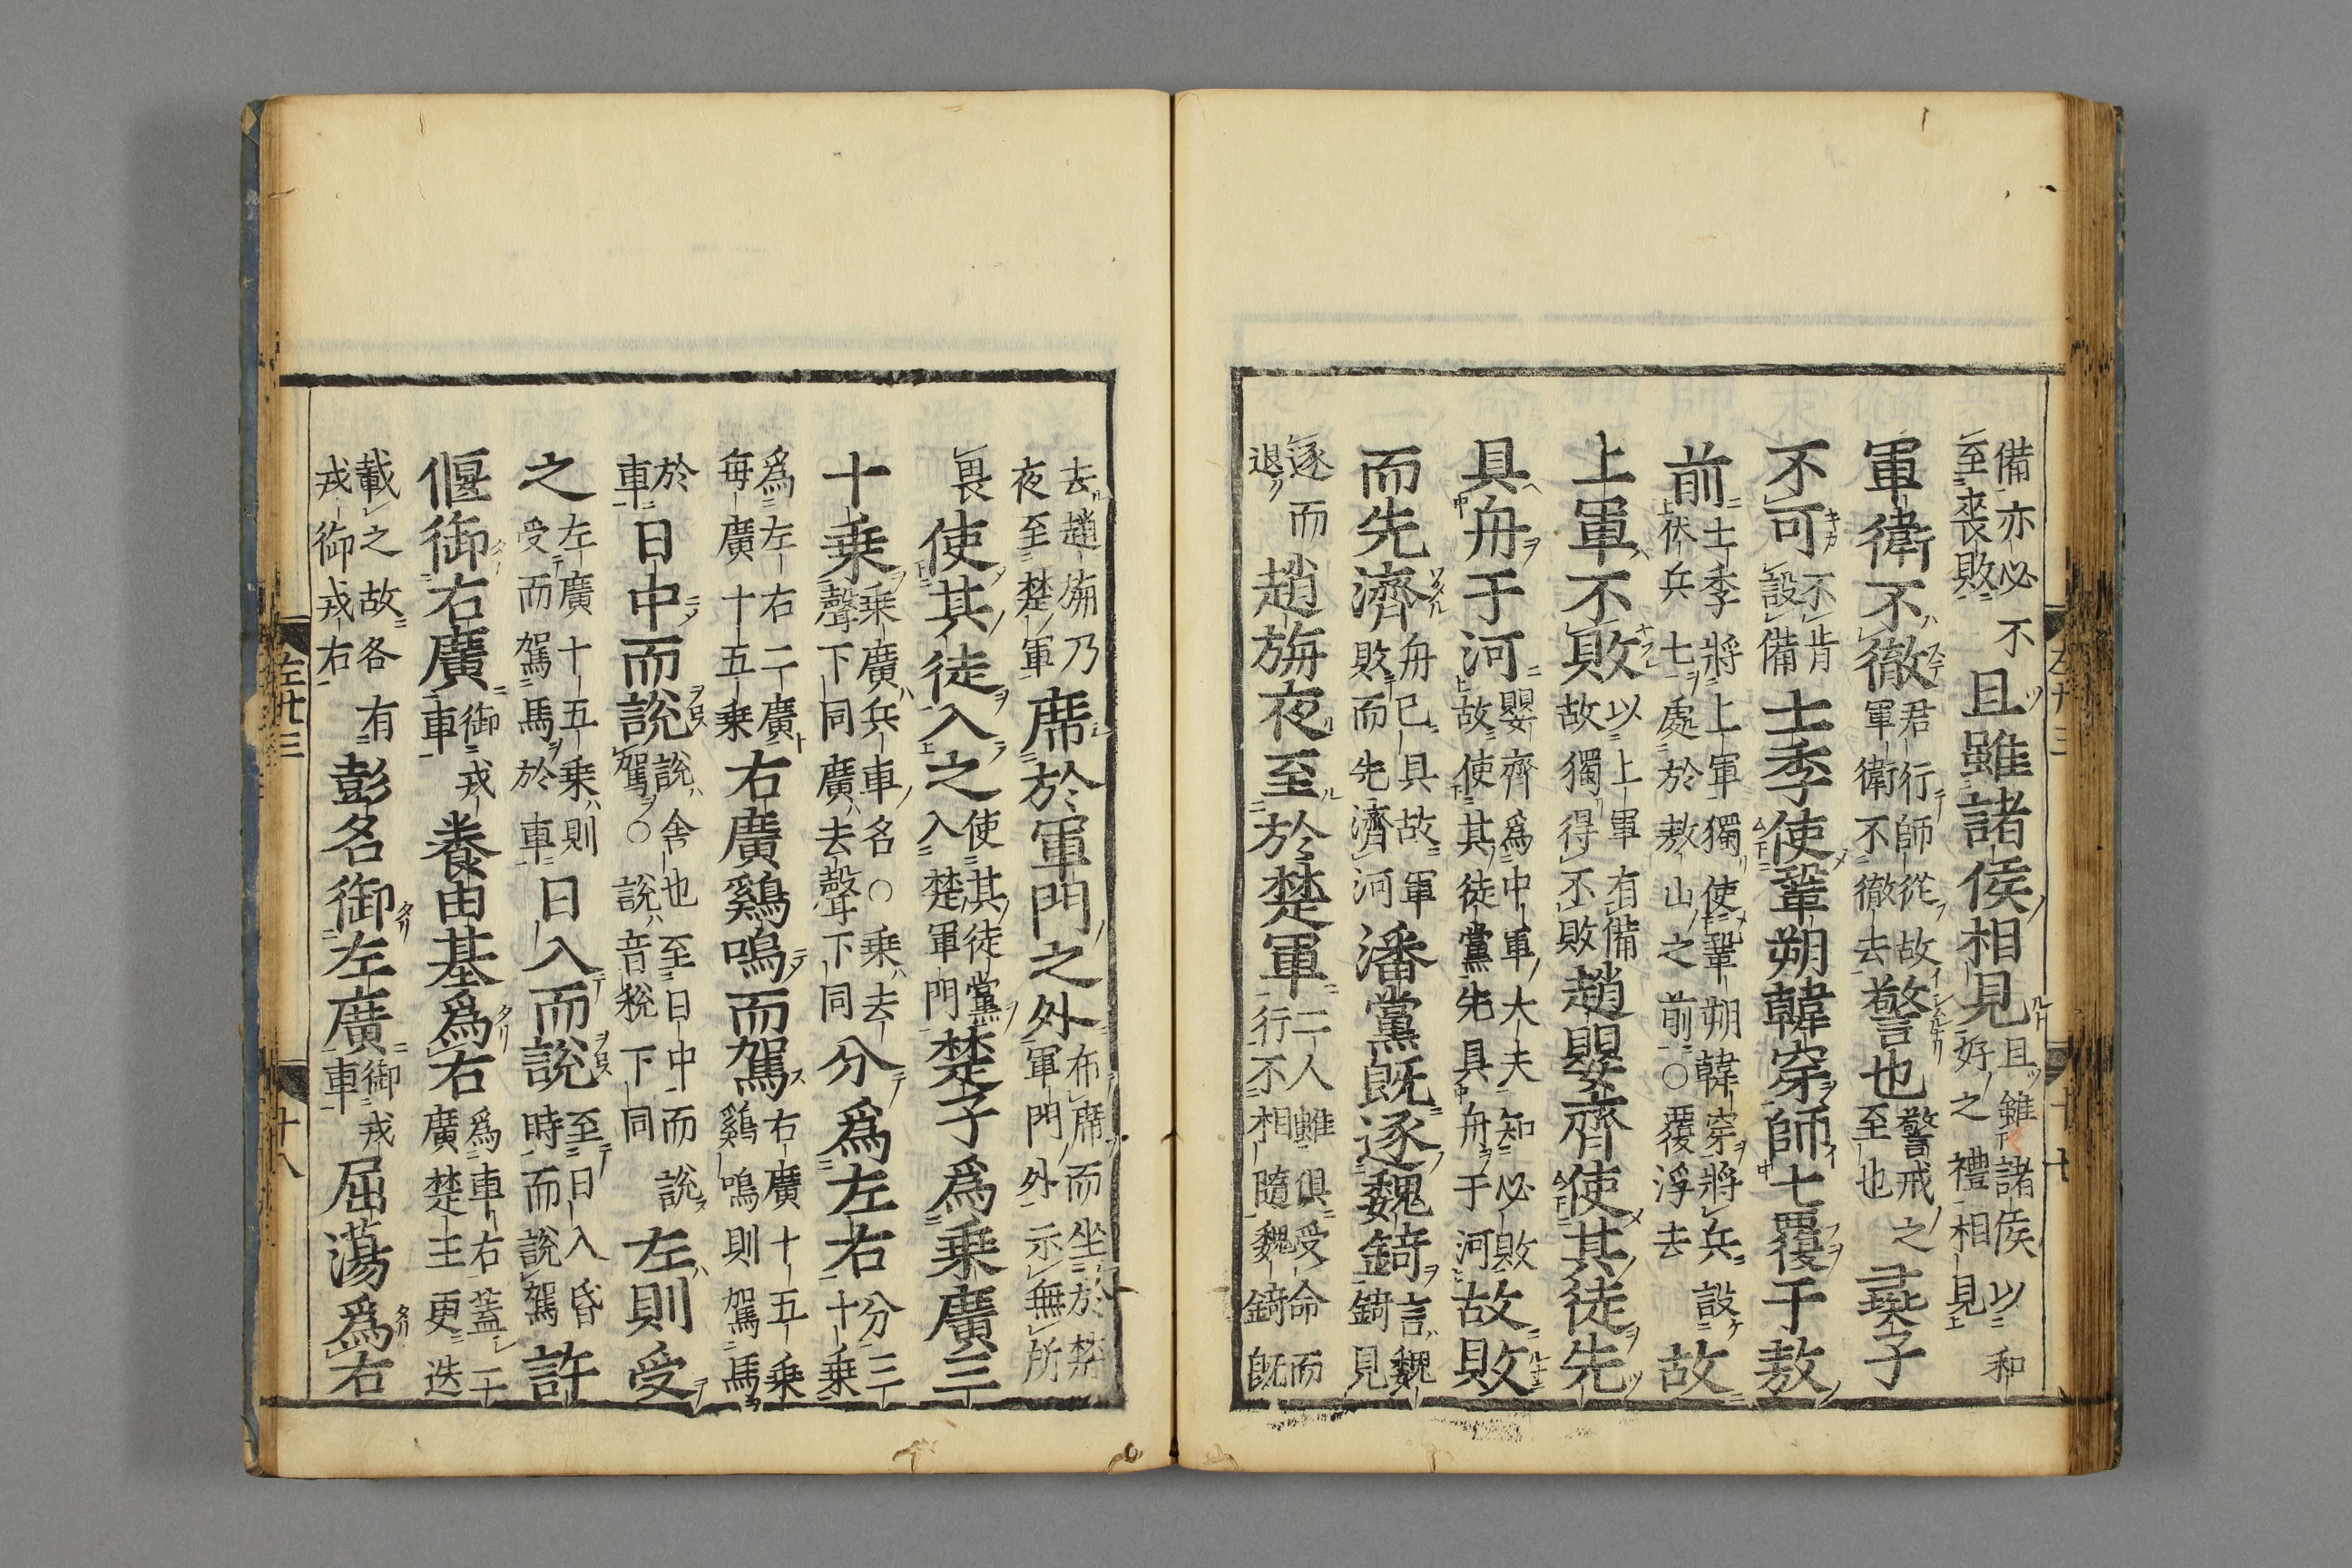 備亦必不
至喪敗
且雖諸侯相見
且雖諸侯以和
好之禮相見
軍衛不徹
君行師從故
軍衛不徹去
警也
警戒之
至也
彘子
不可
不肯
設備
士季使鞏朔韓穿帥七覆于敖
前
士季將上軍獨使鞏朔韓穿將兵設
伏兵七處於敖山之前○覆浮去
故
上軍不敗
以上軍有備
故獨得不敗
趙嬰齊使其徒先
具舟于河
嬰齊為中軍大夫知必敗
故使其徒黨先具舟于河
故敗
而先濟
舟已具故軍
敗而先濟河
潘黨既逐魏錡
言魏
錡見
逐而
退
趙旃夜至於楚軍
二人雖俱受命而
行不相隨魏錡既
左廿三
十七
去趙旃乃
夜至楚軍
席於軍門之外
布席而坐於楚
軍門外示無所
畏
使其徒入之
使其徒黨
入楚軍門
楚子為乗廣三
十乗
乗廣兵車名○乗去
聲下同廣去聲下同
分為左右
分三
十乗
為左右二廣
毎廣十五乗
右廣鷄鳴而駕
右廣十五乗
鷄鳴則駕馬
於
車
日中而說
說舍也至日中而說
駕○說音稅下同
左則受
之
左廣十五乗則
受而駕馬於車
日入而說
至日入昏
時而說駕
許
偃御右廣
御戎
車
養由基為右
為車右蓋二
廣楚王更迭
載之故各有
戎御戎右
彭名御左廣
御戎
車
屈蕩為右
左廿三
十八